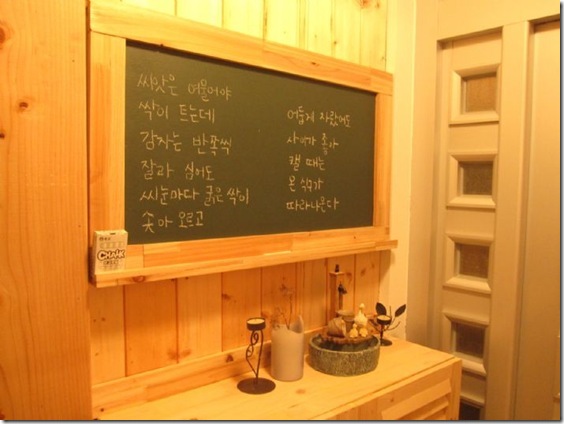 씨앗은 여물어야
싹이 트는데
감자는 반쪽씩
잘라 심어도
씨눈마다 굵은 싹이
솟아 오르고
어둡게 자랐어도
사이가 좋아
캘 때는
온 식구가
따라나온다
CHALK